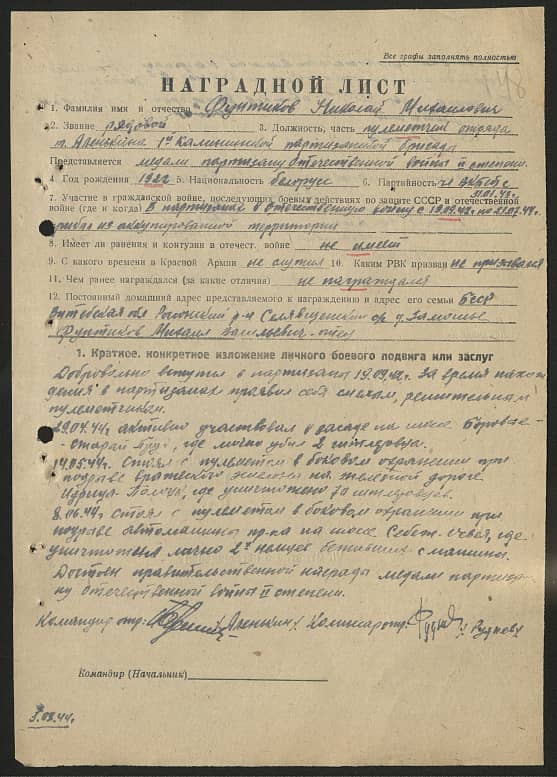 Все графы заполнять полностью
НАГРАДНОЙ ЛИСТ
1. Фамилия имя и отчество Фунтиков Николай Михайлович
2. Звание рядовой 3. Должность, часть пулеметчик отряда
т. Аленкина 1й Калининской партизанской бригады
Представляется медали партизану отечественной войны II степени.
4. Год рождения 1922 5. Национальность белорус 6. Партийность чл ВКП(б) с
7. Участие в гражданской войне, последующих боевых действиях по защите СССР и отечественной
войне (где и когда) в партизанах в отечественную войну с 19.09.42г по 21.07.44г
на оккупированной территории
8. Имеет ли ранения и контузии в отечест. войне не имеет
9. С какого времени в Красной Армии не служил 10. Каким РВК призван не призывался
11. Чем ранее награжден (за какие отличия) не награждался
12. Постоянный домашний адрес представляемого к награждению и адрес его семьи БССР
Витебская обл Россонский р-н с/с д. Замошье
Фунтиков Михаил Васильевич-отец
1. Краткое, конкретное изложение личного боевого подвига или заслуг
Добровольно вступил в партизаны 19.09.42г. За время нахож
дения в партизанах проявил себя смелым, решительным
пулеметчиком.
29.04.44г активно участвовал в засаде на шоссе
, где лично убил 2 гитлеровца.
14.05.44г. Стоял с пулеметом в боковом охранении при
подрыве вражеского эшелона на железной дороге
Идрица-Полоцк, где уничтожено 70 гитлеровцев.
8.06.44г стоял с пулеметом в боковом охранении при
подрыве автомашины пр-ка на шоссе Себеж- , где
уничтожил лично 2х немцев бежавших с машины.
Достоин правительственной награды медали партиза-
ну отечественной войны II степени.
Командир отр. /Аленкин/ Комиссар отр. /Рудков/
Командир (Начальник)
3.08.44г.